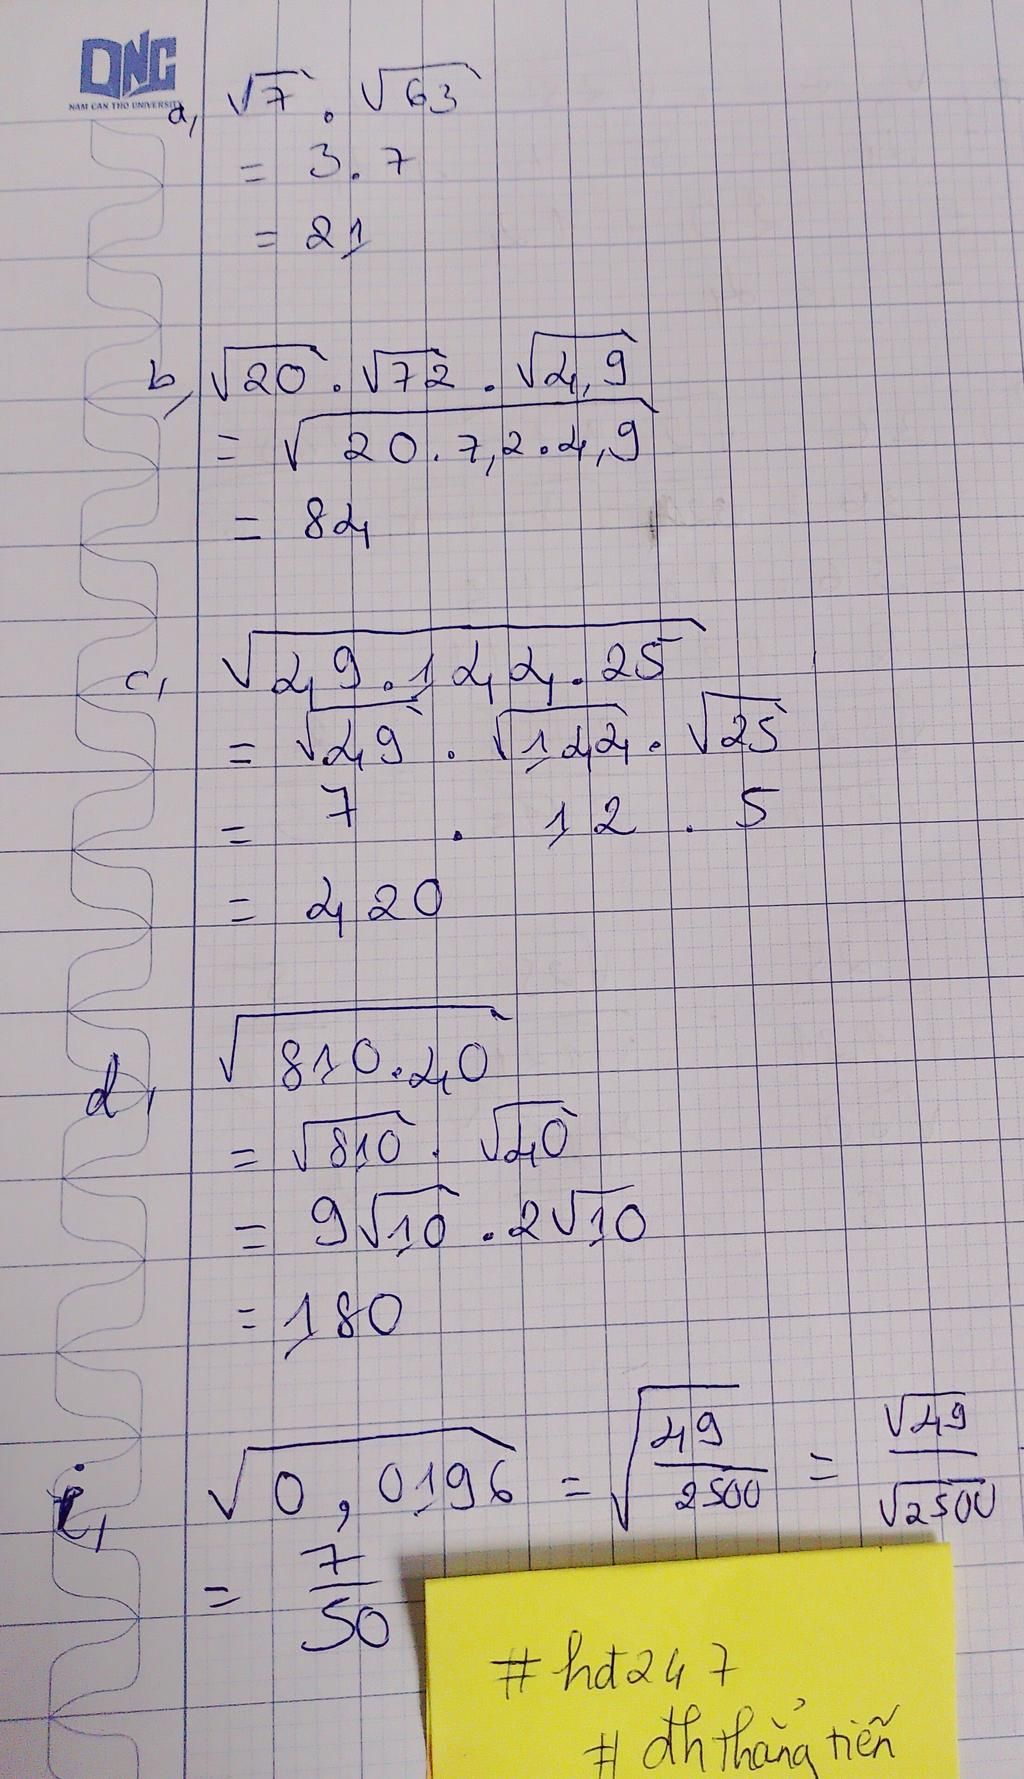 DNC
NAM CAN THO UNIVERSITY
a, √7 . √63
= 3.7
= 21
b, √20 . √72 . √4,9
= √20.7,2.4,9
= 84
c, √49.144.25
= √49 . √144 . √25
= 7 . 12 . 5
= 420
d, √810.40
= √810 . √40
= 9√10 . 2√10
= 180
i, √0,0196 = √49/2500 = √49/√2500
= 7/50
#hd247
#đh thẳng tiễn